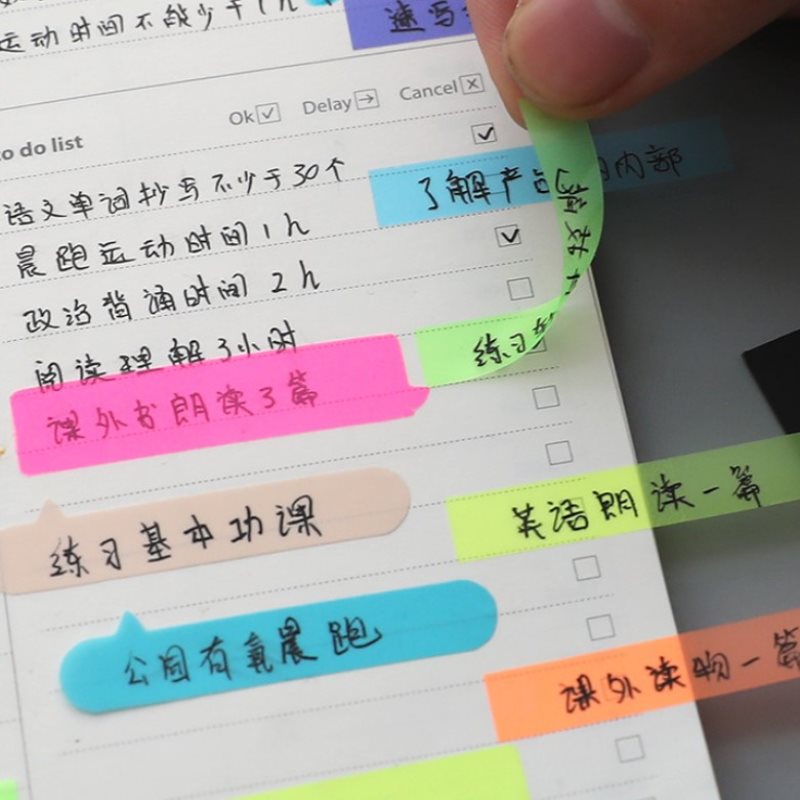 运动时间不能少于1h
速写
Ok Delay Cancel
to do list
语文单词抄写不少于30个
了解产品 内部
晨跑运动时间1h
政治背诵时间2h
阅读理解3小时
练习
课外书朗读3篇
英语朗读一篇
练习基本功课
公园有氧晨跑
课外读物一篇